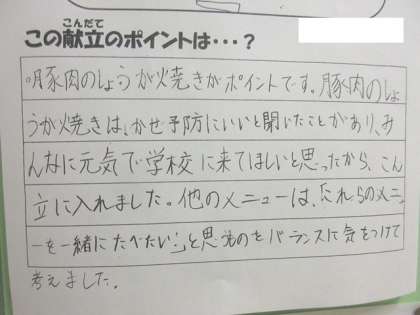 こんだて
この献立のポイントは・・・?
豚肉のしょうが焼きがポイントです。豚肉のしょ
うが焼きは、かぜ予防にいいと聞いたことがあり、み
んなに元気で学校に来てほしいと思ったから、こん
立に入れました。他のメニューは、「これらのメニュ
ーを一緒にたべたい!」と思うものをバランスに気をつけて
考えました。